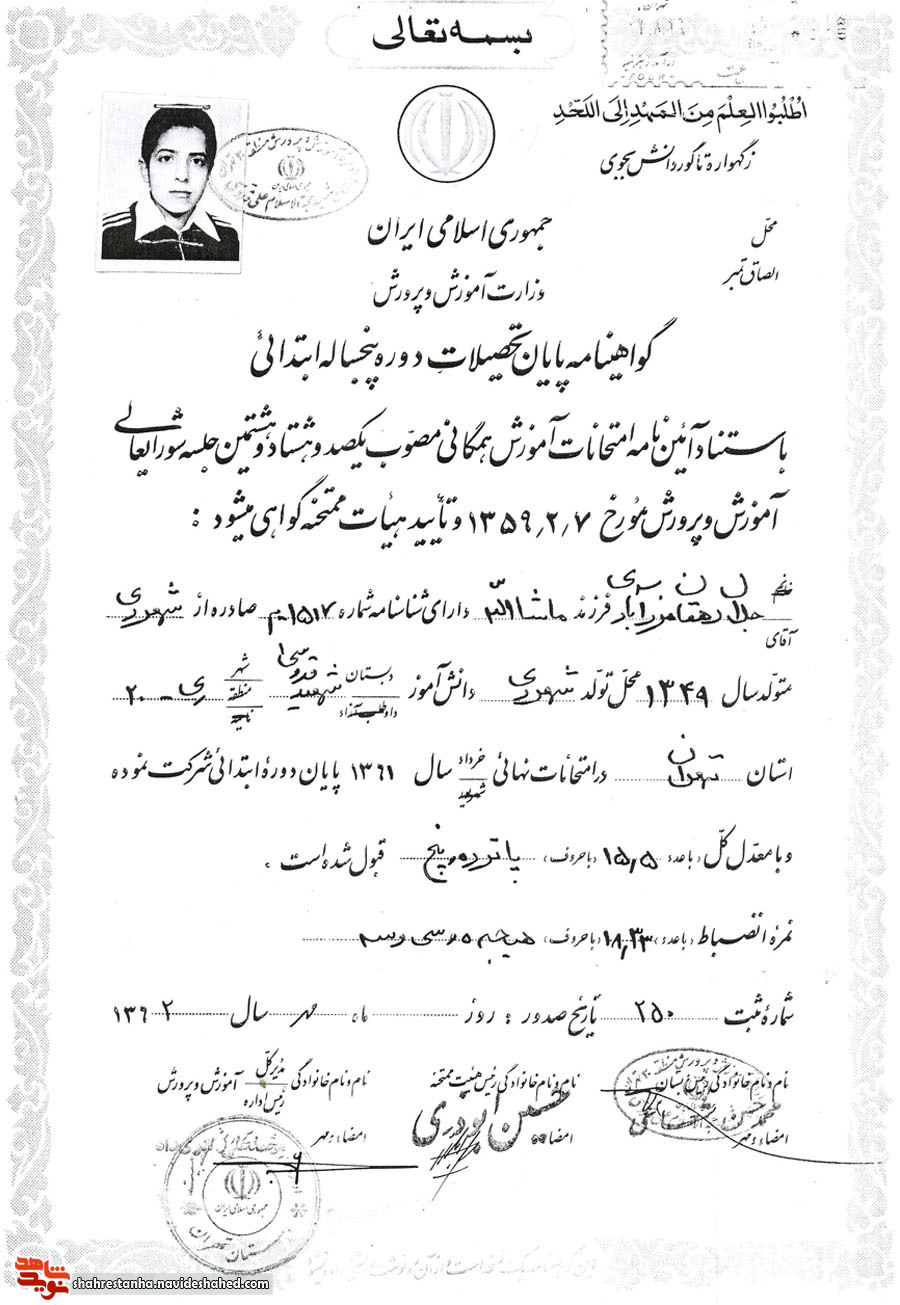 بسمه تعالی
اُطْلُبُوا الْعِلْمَ مِنَ الْمَهْدِ إِلَی اللَّحْدِ
ز گهواره تا گور دانش بجوی
جمهوری اسلامی ایران
محل
وزارت آموزش و پرورش
الصاق تمبر
گواهینامه پایان تحصیلات دوره پنجساله ابتدائی
باستناد آئین نامه امتحانات آموزش همگانی مصوب یکصد و هشتاد و هشتمین جلسه شورایعالی
آموزش و پرورش مورخ ۱۳۵۹٫۲٫۷ و تأیید هیأت ممتحنه گواهی میشود :
آقای جلال فرزند ماشااله دارای شناسنامه شماره ۱۵۱۷ صادره از شهرری
متولد سال ۱۳۴۹ محل تولد شهرری دانش آموز دبستان شهید قدوسی شهر منطقه ناحیه ری - ۲۰
داوطلب آزاد
استان تهران در امتحانات نهائی خرداد سال ۱۳۶۱ پایان دوره ابتدائی شرکت نموده
شهریور
و با معدل کل (باعدد) ۱۵٫۵ (باحروف) پانزده و پنج قبول شده است .
نمره انضباط (باعدد) ۱۸٫۳۳ (باحروف) هیجده و سی و سه
شماره ثبت ۲۵۰ تاریخ صدور : روز ماه مهر سال ۱۳۶۲
نام و نام خانوادگی رئیس دبستان
نام و نام خانوادگی رئیس هیئت ممتحنه
نام و نام خانوادگی مدیرکل آموزش و پرورش
رئیس اداره
حسین ابوذری
امضاء و مهر
امضاء
امضاء و مهر
جمهوری اسلامی ایران
نوید شاهد
shahrestanha.navideshahed.com